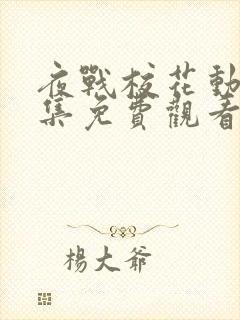 夜戰校花動
集免費觀看
楊大爺